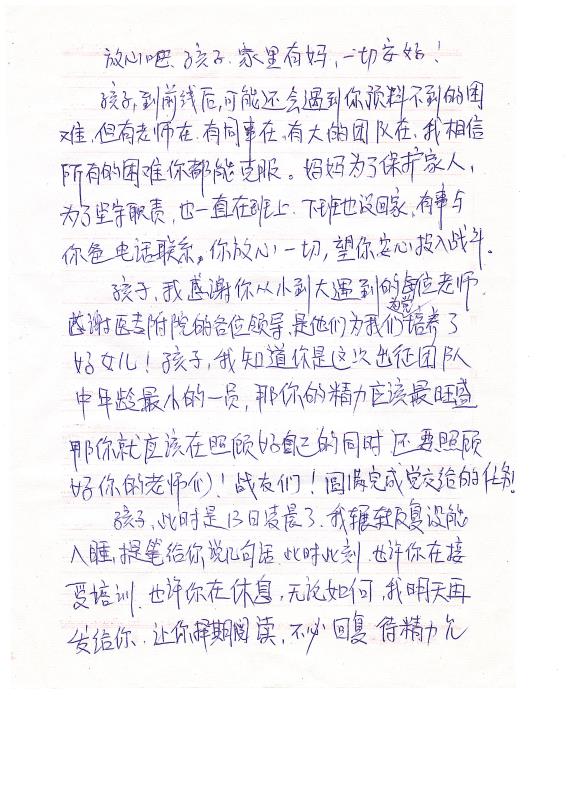 放心吧、孩子、家里有妈，一切安好！
孩子，到前线后，可能还会遇到你预料不到的困
难，但有老师在、有同事在、有大的团队在，我相信
所有的困难你都能克服。妈妈为了保护家人，
为了坚守职责，也一直在班上、下班也没回家，有事与
你爸电话联系，你放心一切，望你安心投入战斗。
孩子，我感谢你从小到大遇到的每位老师
感谢医专附院的各位领导，是他们为我们培养了
好女儿！孩子，我知道你是这次出征团队
中年龄最小的一员，那你的精力应该最旺盛
那你就应该在照顾好自己的同时还要照顾
好你的老师们！战友们！圆满完成党交给的任务！
孩子，此时是13日凌晨了，我辗转反复没能
入睡，提笔给你说几句话，此时此刻，也许你在接
受培训、也许你在休息，无论如何，我明天再
发给你、让你择期阅读，不必回复、待精力允